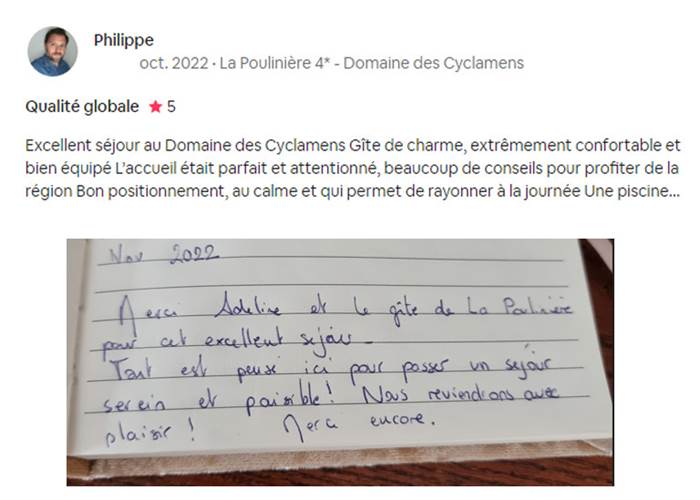 Philippe
oct. 2022 · La Poulinière 4* - Domaine des Cyclamens
Qualité globale ★ 5
Excellent séjour au Domaine des Cyclamens Gîte de charme, extrêmement confortable et
bien équipé L’accueil était parfait et attentionné, beaucoup de conseils pour profiter de la
région Bon positionnement, au calme et qui permet de rayonner à la journée Une piscine...
Nov 2022
Merci Adeline et le gîte de La Poulinière
pour cet excellent séjour.
Tout est pensé ici pour passer un séjour
serein et paisible! Nous reviendrons avec
plaisir! Merci encore.